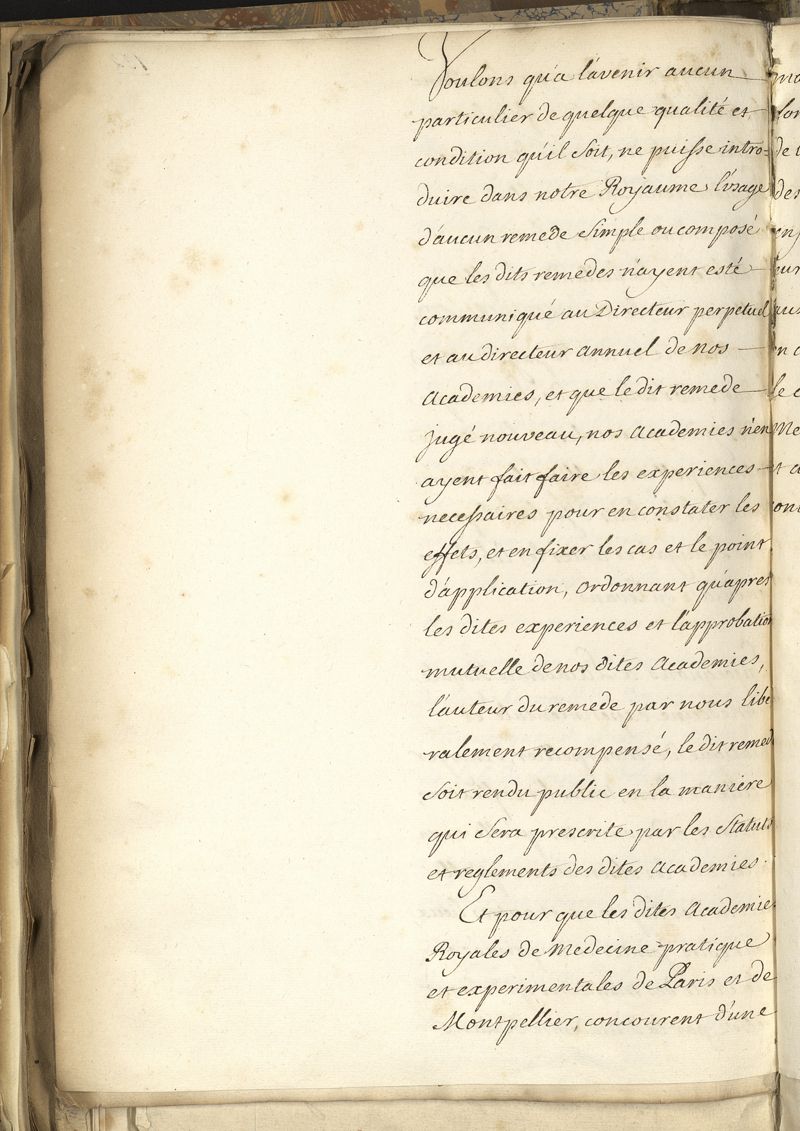 Voulons qu'a l'avenir aucun
particulier de quelque qualité et
condition qu'il soit, ne puisse intro-
duire dans notre Royaume l'usage
d'aucun remede simple ou composé
que les dits remedes n'ayent esté
communiqué au Directeur perpetuel
et au directeur annuel de nos
academies, et que le dit remede
jugé nouveau, nos academies n'en
ayent fait faire les experiences
necessaires pour en constater les
effets, et en fixer les cas et le point
d'application, ordonnant qu'apres
les dites experiences et l'approbation
mutuelle de nos dites academies,
l'auteur du remede par nous libe
ralement recompensé, le dit remede
soit rendu public en la maniere
qui sera prescrite par les statuts
et reglements des dites academies.
Et pour que les dites academies
Royales de medecine pratique
et experimentales de Paris et de
Montpellier, concourent d'une